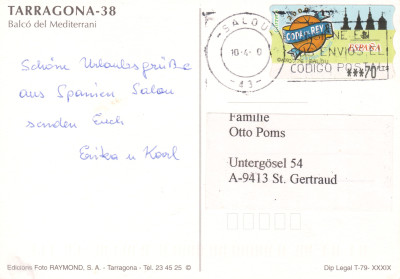 TARRAGONA-38
Balcó del Mediterrani
Schöne Urlaubsgrüße
aus Spanien Salou
senden Euch
Erika u Karl
SALOU
10-4-0
-43-
COPA REY
ESPAÑA
***70
ENVIOS E
CODIGO POSTAL
Familie
Otto Poms
Untergösel 54
A-9413 St. Gertraud
Edicions Foto RAYMOND, S. A. - Tarragona - Tel. 23 45 25 ©
Dip Legal T-79- XXXIX